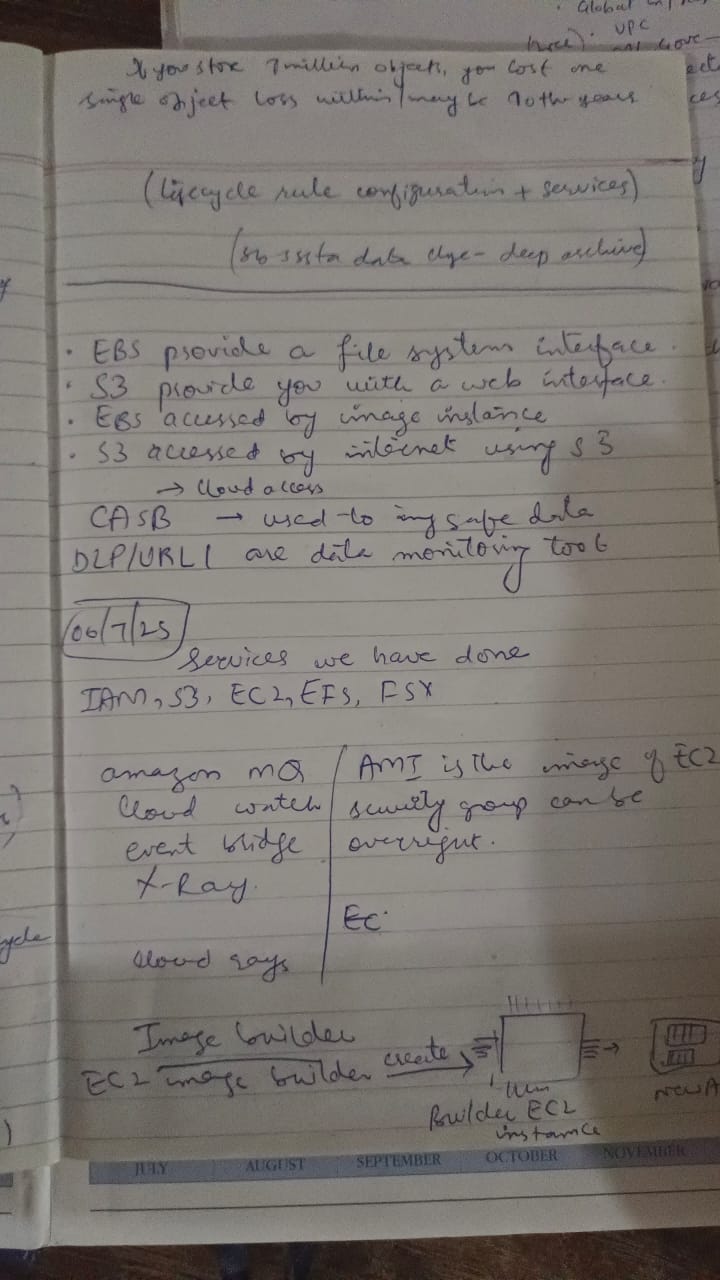 Global
VPC
If you store 7 million objects, you lost one
single object loss within/may be 10th years
(Lifecycle rule configuration + services)
data deep archive)
• EBS provide a file systems interface.
• S3 provide you with a web interface.
• EBS accessed by image instance
• S3 accessed by internet using S3
→ Cloud access
CASB → used to safe data
DLP/URL are data monitoring tool
06/7/25
Services we have done
IAM, S3, EC2, EFS, FSX
amazon MQ
Cloud watch
event bridge
X-Ray.
Cloud rays
AMI is the image of EC2
security group can be
EC
Image builder
EC2 image builder create
Builder EC2
instance
new A
ycle
JULY AUGUST SEPTEMBER OCTOBER NOVEMBER